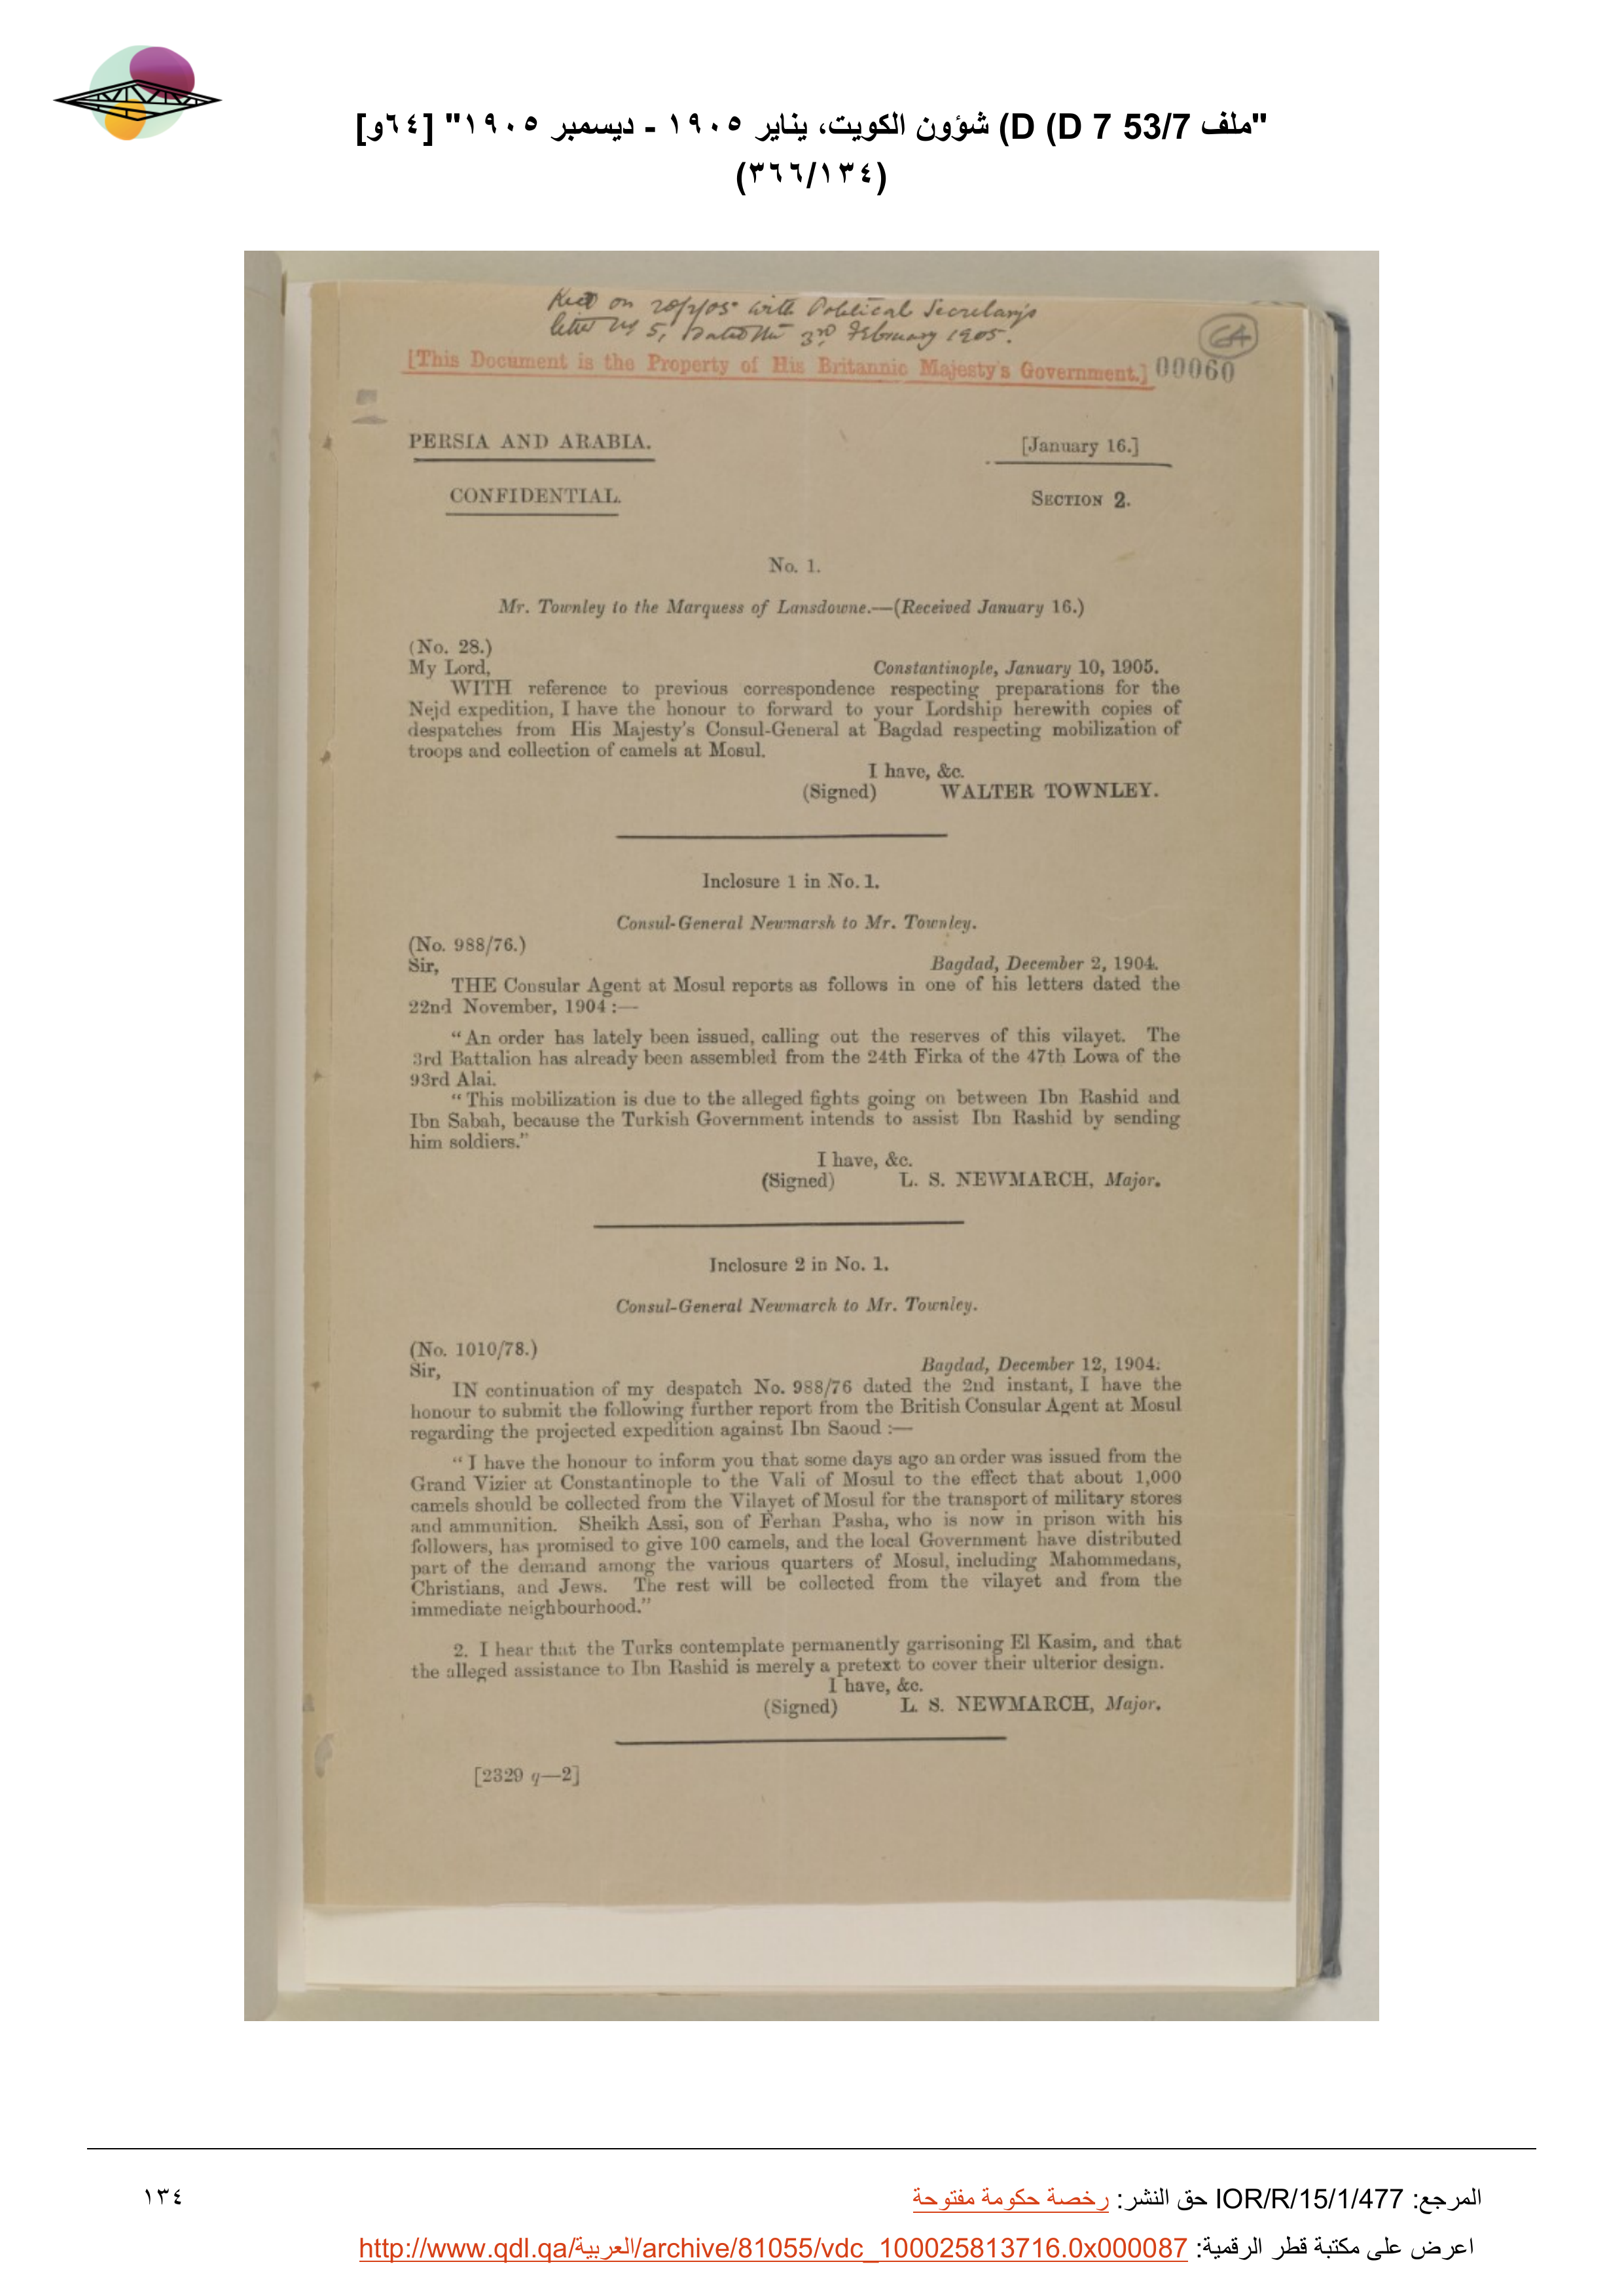 "ملف D (D 7 53/7) شؤون الكويت، يناير ١٩٠٥ - ديسمبر ١٩٠٥" [٦٤و]
(٣٦٦/١٣٤)
on 20/2/05 with Political Secretary's
letter No 5, dated the 3rd February 1905.
64
[This Document is the Property of His Britannic Majesty's Government.] 00060
PERSIA AND ARABIA.
[January 16.]
CONFIDENTIAL.
SECTION 2.
No. 1.
Mr. Townley to the Marquess of Lansdowne.—(Received January 16.)
(No. 28.)
My Lord, Constantinople, January 10, 1905.
WITH reference to previous correspondence respecting preparations for the
Nejd expedition, I have the honour to forward to your Lordship herewith copies of
despatches from His Majesty's Consul-General at Bagdad respecting mobilization of
troops and collection of camels at Mosul.
I have, &c.
(Signed) WALTER TOWNLEY.
Inclosure 1 in No. 1.
Consul-General Newmarsh to Mr. Townley.
(No. 988/76.)
Sir, Bagdad, December 2, 1904.
THE Consular Agent at Mosul reports as follows in one of his letters dated the
22nd November, 1904 :—
"An order has lately been issued, calling out the reserves of this vilayet. The
3rd Battalion has already been assembled from the 24th Firka of the 47th Lowa of the
93rd Alai.
"This mobilization is due to the alleged fights going on between Ibn Rashid and
Ibn Sabah, because the Turkish Government intends to assist Ibn Rashid by sending
him soldiers."
I have, &c.
(Signed) L. S. NEWMARCH, Major.
Inclosure 2 in No. 1.
Consul-General Newmarch to Mr. Townley.
(No. 1010/78.)
Sir, Bagdad, December 12, 1904.
IN continuation of my despatch No. 988/76 dated the 2nd instant, I have the
honour to submit the following further report from the British Consular Agent at Mosul
regarding the projected expedition against Ibn Saoud :—
"I have the honour to inform you that some days ago an order was issued from the
Grand Vizier at Constantinople to the Vali of Mosul to the effect that about 1,000
camels should be collected from the Vilayet of Mosul for the transport of military stores
and ammunition. Sheikh Assi, son of Ferhan Pasha, who is now in prison with his
followers, has promised to give 100 camels, and the local Government have distributed
part of the demand among the various quarters of Mosul, including Mahommedans,
Christians, and Jews. The rest will be collected from the vilayet and from the
immediate neighbourhood."
2. I hear that the Turks contemplate permanently garrisoning El Kasim, and that
the alleged assistance to Ibn Rashid is merely a pretext to cover their ulterior design.
I have, &c.
(Signed) L. S. NEWMARCH, Major.
[2329 q—2]
المرجع: IOR/R/15/1/477 حق النشر: رخصة حكومة مفتوحة
١٣٤
اعرض على مكتبة قطر الرقمية: http://www.qdl.qa/العربية/archive/81055/vdc_100025813716.0x000087